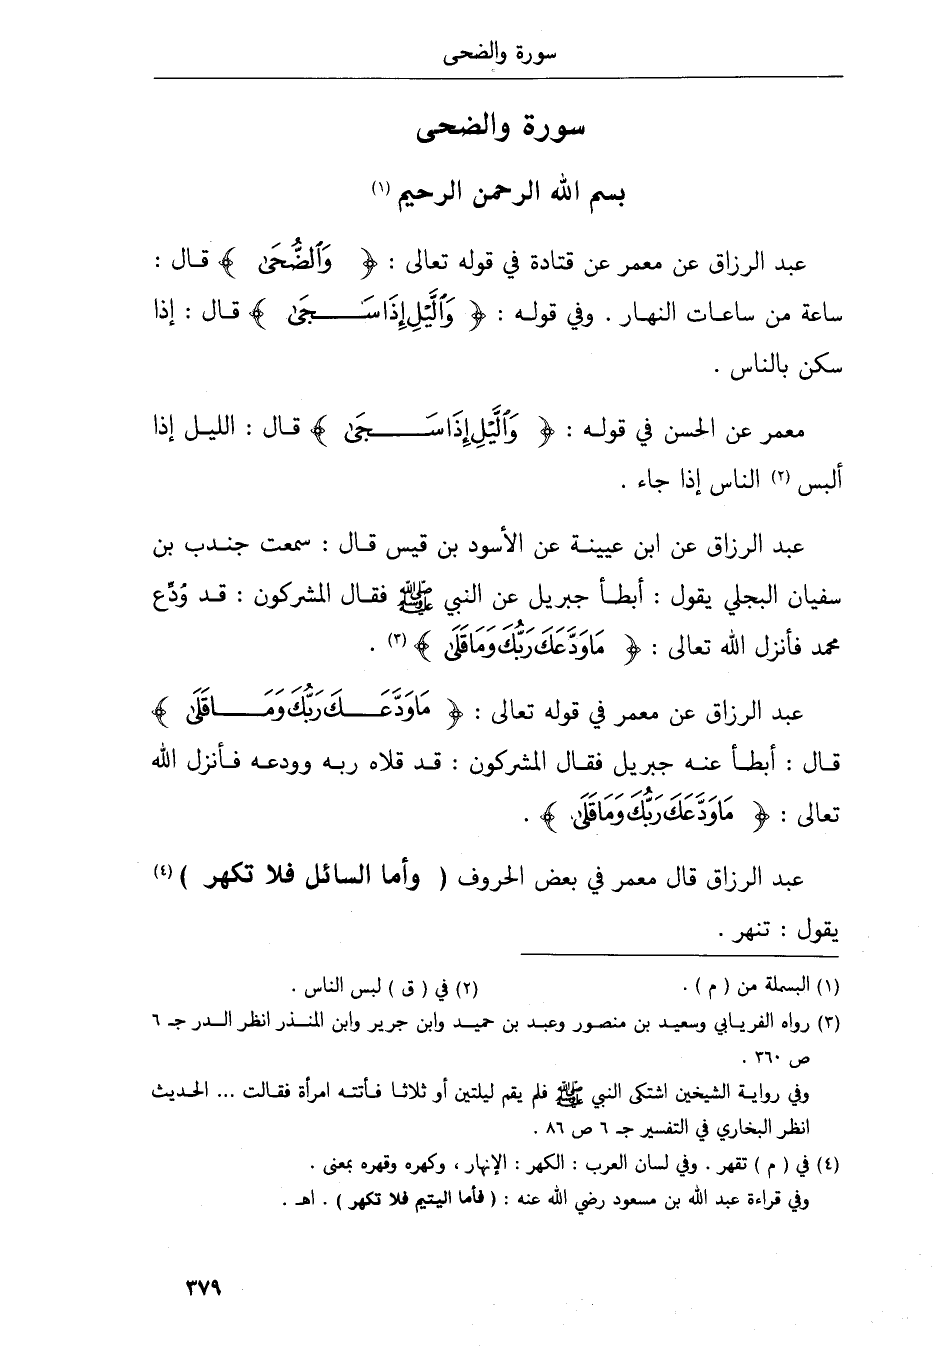 سورة والضحى
سورة والضحى
بسم الله الرحمن الرحيم (١)
عبد الرزاق عن معمر عن قتادة في قوله تعالى : ﴿ وَٱلضُّحَىٰ ﴾ قال :
ساعة من ساعات النهار . وفي قوله : ﴿ وَٱلَّيْلِ إِذَا سَجَىٰ ﴾ قال : إذا
سكن بالناس .
معمر عن الحسن في قوله : ﴿ وَٱلَّيْلِ إِذَا سَجَىٰ ﴾ قال : الليل إذا
ألبس (٢) الناس إذا جاء .
عبد الرزاق عن ابن عيينة عن الأسود بن قيس قال : سمعت جندب بن
سفيان البجلي يقول : أبطأ جبريل عن النبي ﷺ فقال المشركون : قد وُدِّع
محمد فأنزل الله تعالى : ﴿ مَاوَدَّعَكَ رَبُّكَ وَمَاقَلَىٰ ﴾ (٣) .
عبد الرزاق عن معمر في قوله تعالى : ﴿ مَاوَدَّعَكَ رَبُّكَ وَمَاقَلَىٰ ﴾
قال : أبطأ عنه جبريل فقال المشركون : قد قلاه ربه وودعه فأنزل الله
تعالى : ﴿ مَاوَدَّعَكَ رَبُّكَ وَمَاقَلَىٰ ﴾ .
عبد الرزاق قال معمر في بعض الحروف ( وأما السائل فلا تكهر ) (٤)
يقول : تنهر .
(١) البسملة من ( م ) . (٢) في ( ق ) لبس الناس .
(٣) رواه الفريابي وسعيد بن منصور وعبد بن حميد وابن جرير وابن المنذر انظر الدر جـ ٦
ص ٣٦٠ .
وفي رواية الشيخين اشتكى النبي ﷺ فلم يقم ليلتين أو ثلاثا فأتته امرأة فقالت ... الحديث
انظر البخاري في التفسير جـ ٦ ص ٨٦ .
(٤) في ( م ) تقهر . وفي لسان العرب : الكهر : الإنهار ، وكهره وقهره بمعنى .
وفي قراءة عبد الله بن مسعود رضي الله عنه : ( فأما اليتيم فلا تكهر ) . اهـ .
٣٧٩